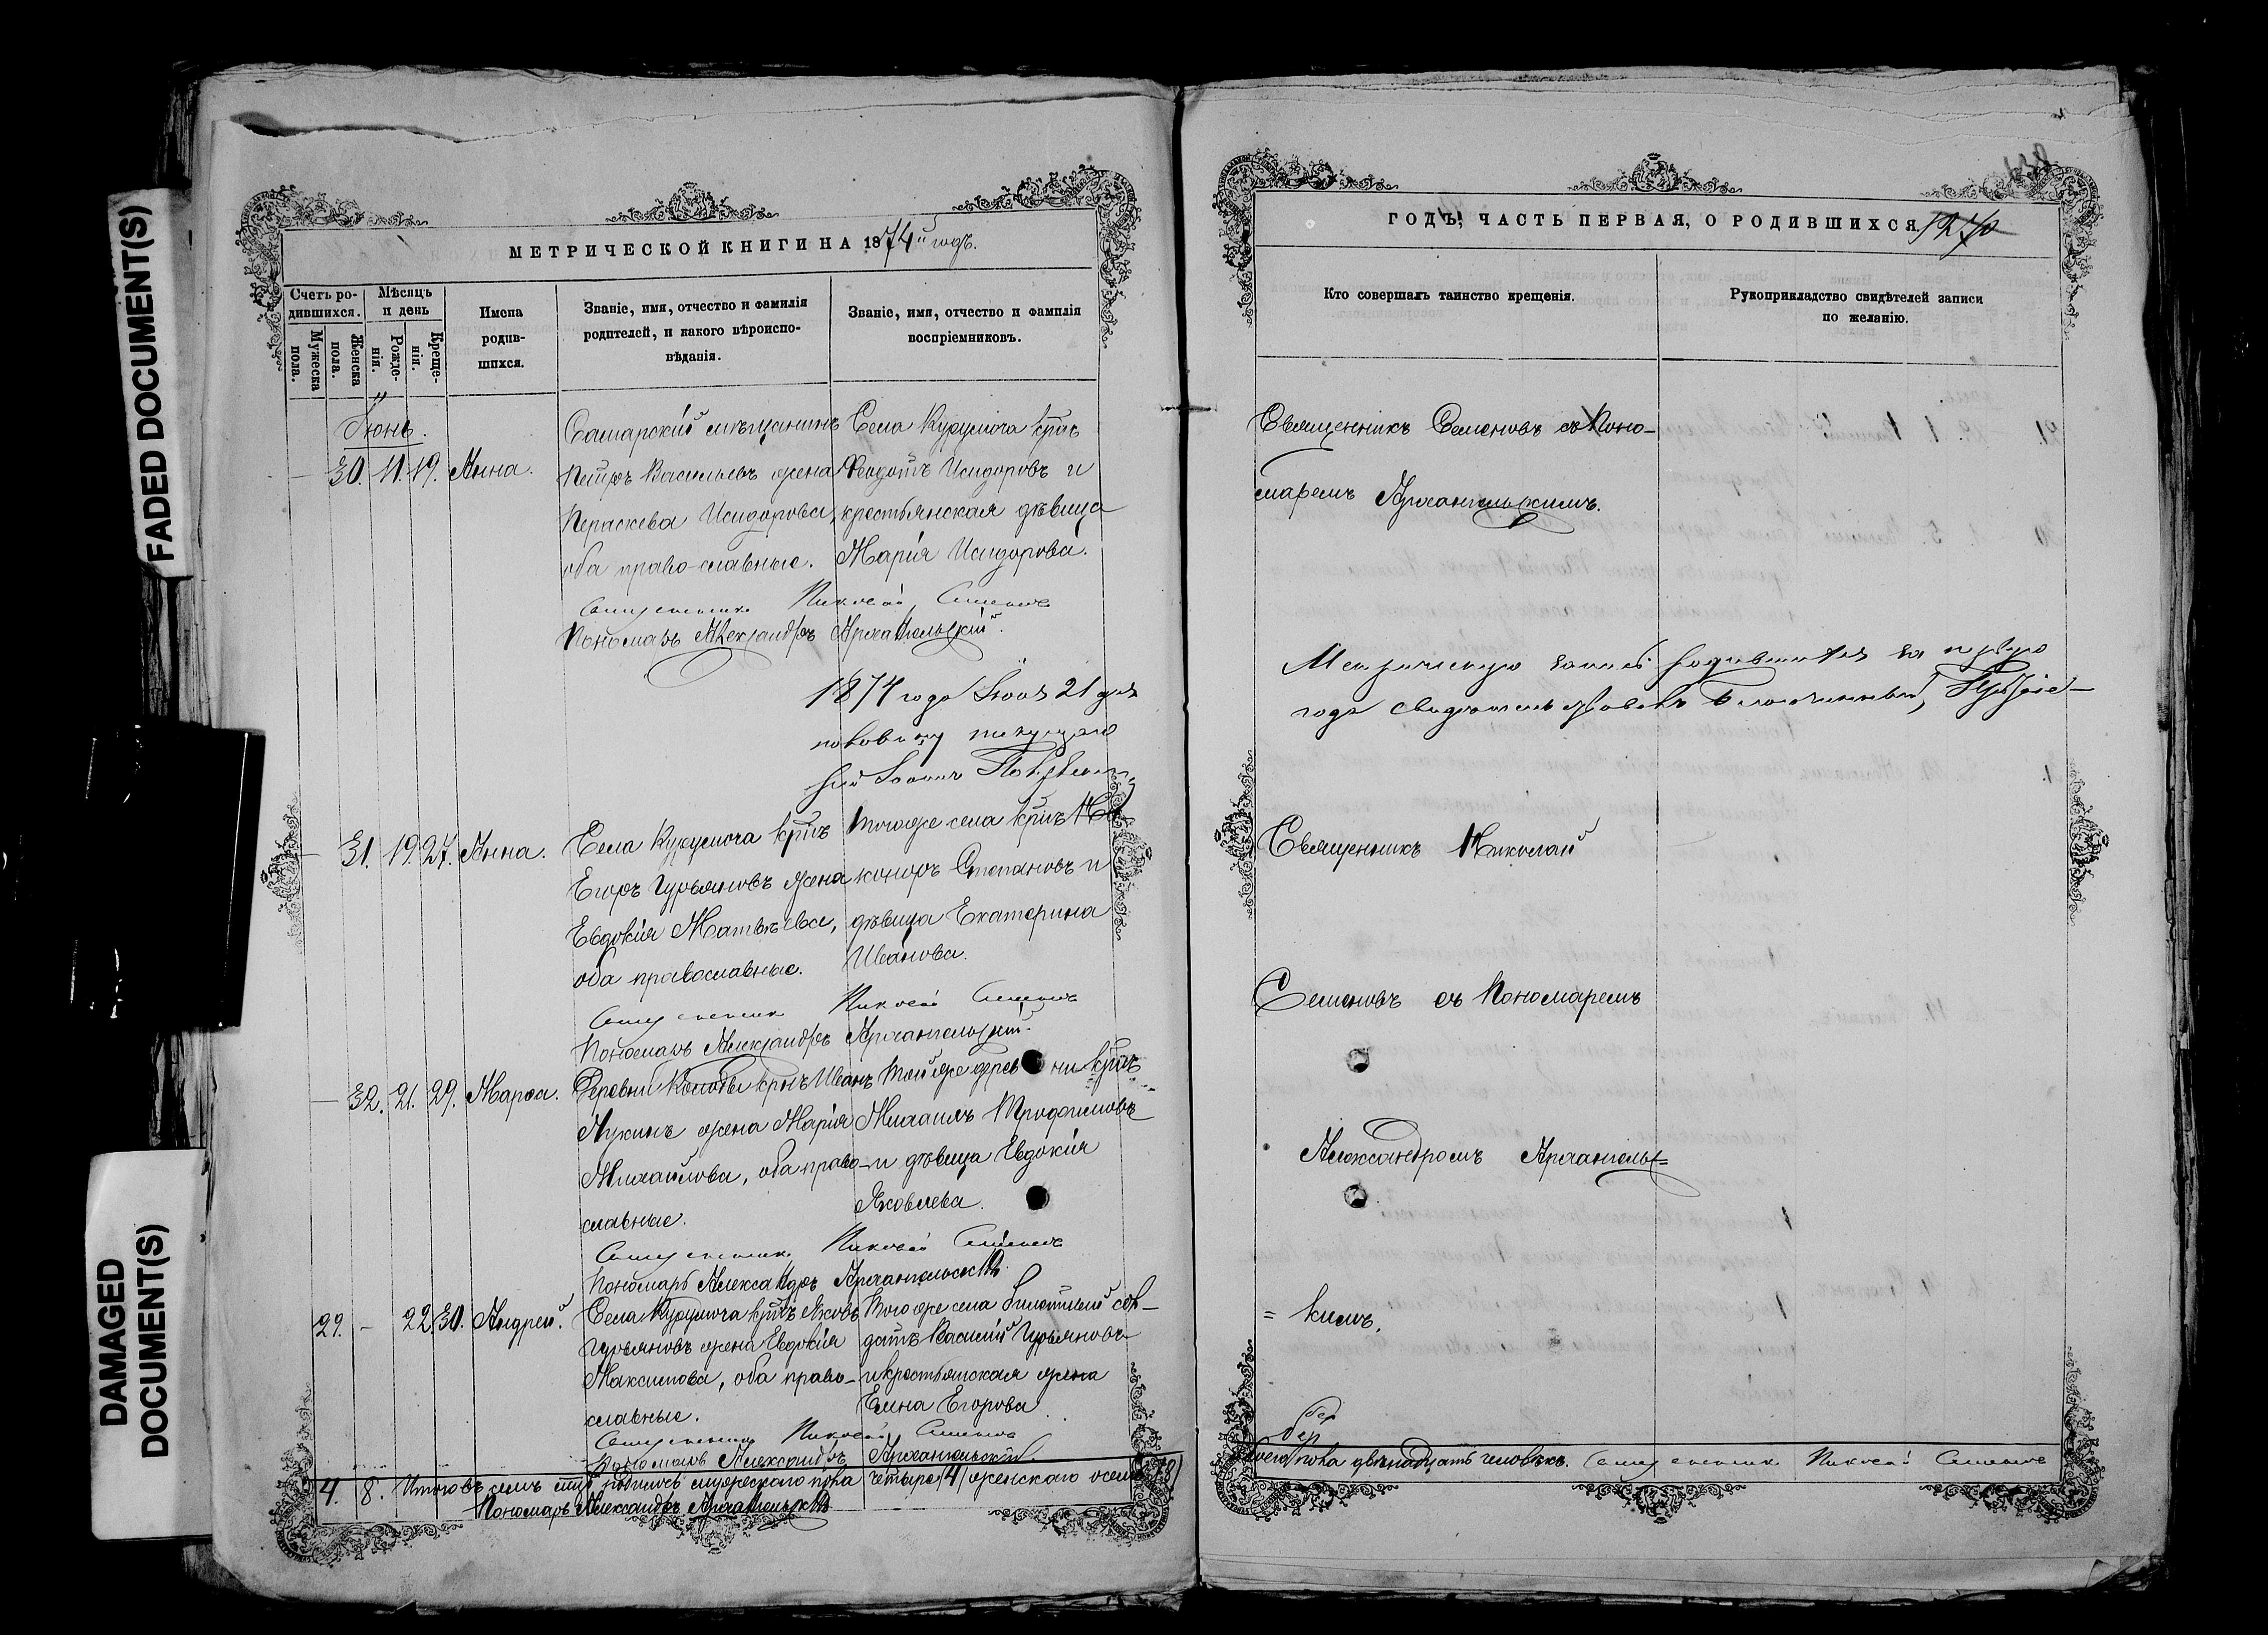 FADED DOCUMENT(S)
DAMAGED
DOCUMENT(S)
МЕТРИЧЕСКОЙ КНИГИ НА 1874й годъ.
Счетъ ро-
дившихся.
Мужеска
пола.
Женска
пола.
Мѣсяцъ
и день
Рожде-
нія.
Креще-
нія.
Имена
родив-
шихся.
Званіе, имя, отчество и фамилія
родителей, и какого вѣроиспо-
вѣданія.
Званіе, имя, отчество и фамилія
воспріемниковъ.
Іюнь.
30. 11. 19. Анна.
Самарскій мѣщанинъ
Петръ Васильевъ жена
Параскева Исидорова,
оба право-славные.
Села Курумоча крнъ
Ѳеодотъ Исидоровъ и
крестьянская дѣвица
Марія Исидорова.
Священникъ Николай Семеновъ
Пономарь Александръ Архангельскій.
1874 года Іюля 21 дня
половину текущаго
рей Іоаннъ
31. 19. 27. Анна.
Села Курумоча крнъ
Егоръ Гурьяновъ жена
Евдокія Матвѣева,
оба православные.
Тогоже села крнъ Ни-
коноръ Степановъ и
дѣвица Екатерина
Иванова.
Священникъ Николай Семеновъ
Пономарь Александръ Архангельскій.
32. 21. 29. Марѳа.
Деревни крнъ Иванъ
Лукинъ жена Марія
Михайлова, оба право-
славные.
Тойже деревни крнъ
Михаилъ Трофимовъ
и дѣвица Евдокія
Яковлева.
Священникъ Николай Семеновъ
Пономарь Александръ Архангельскій
29. - 22. 30. Андрей.
Села Курумоча крнъ Яковъ
Гурьяновъ жена Евдокія
Максимова, оба право-
славные.
Тогоже села билетный сол-
датъ Василій Гурьяновъ
и крестьянская жена
Елена Егорова.
Священникъ Николай Семеновъ
Пономарь Александръ Архангельскій.
4. 8. Итого въ семъ родилось мужескаго пола четыре (4) женскаго осемь (8)
Пономарь Александръ Архангельскій
ГОДЪ, ЧАСТЬ ПЕРВАЯ, О РОДИВШИХСЯ
Кто совершалъ таинство крещенія.
Рукоприкладство свидѣтелей записи
по желанію.
Священникъ Семеновъ съ Поно-
маремъ Архангельскимъ.
Метрическую запись родившихся за первую
года свидѣтельствовалъ Благочинный, Іе-
Священникъ Николай
Семеновъ съ Пономаремъ
Александромъ Архангельс=
= кимъ.
обоего пола двѣнадцать человѣкъ. Священникъ Николай Семеновъ